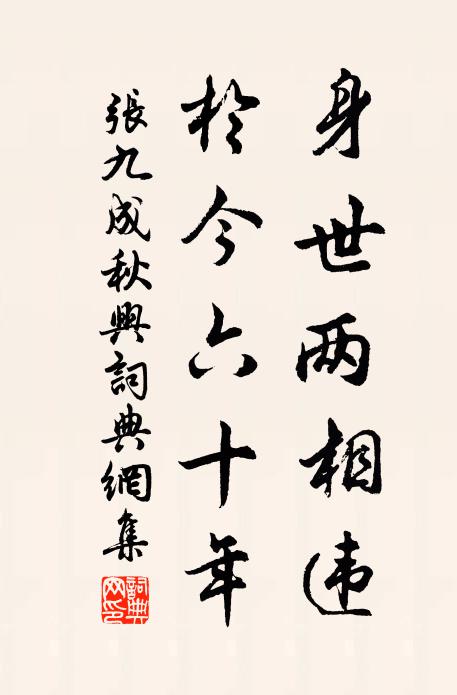 身世两相违
於今六十年
張九成秋興詞典網集
詞典網印